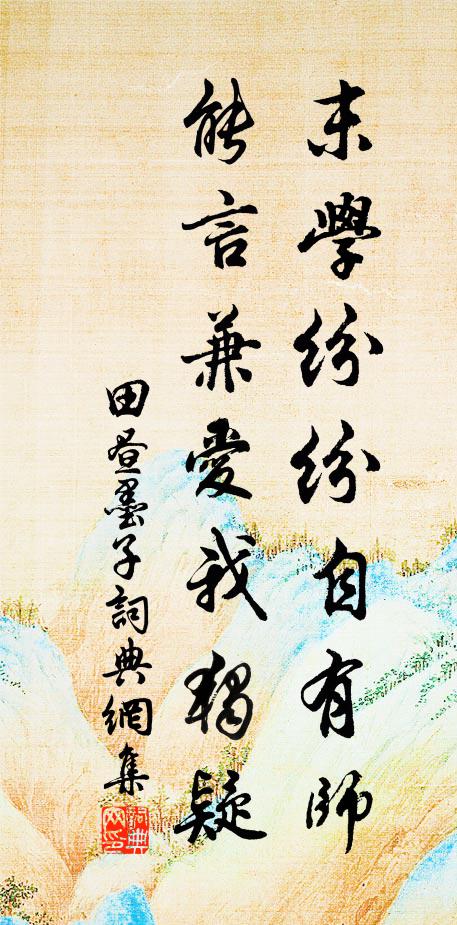 末學紛紛自有師
能言兼愛我獨疑
田昼墨子詞典網集
詞典